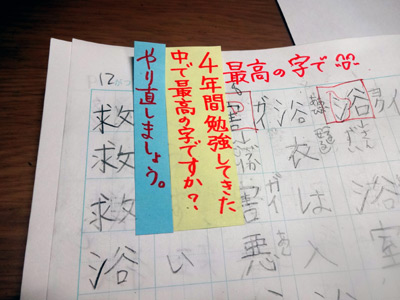 最高の字で
4年間勉強してきた
中で最高の字ですか?
やり直しましょう。
12
浴
浴室
浴衣は入
害
ガイ
害悪
ガイ
を
い
救救救浴